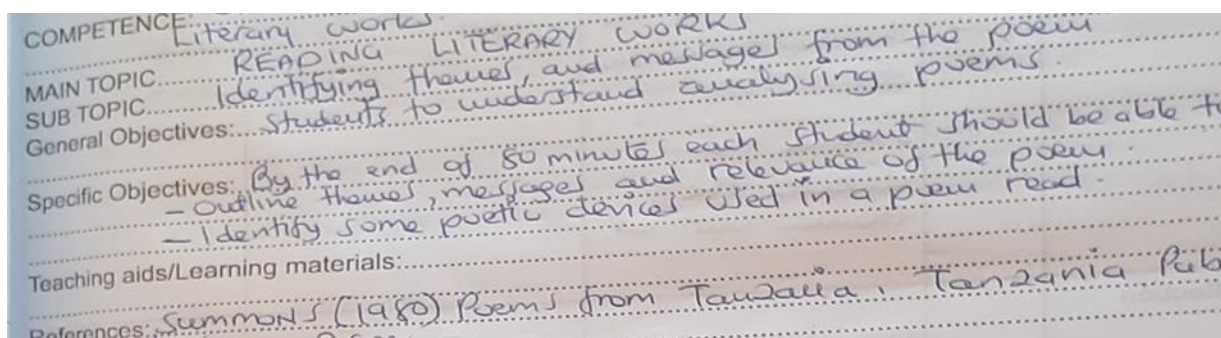 COMPETENCE: Literary works.
MAIN TOPIC READING LITERARY WORKS
SUB TOPIC Identifying themes, and messages from the poem
General Objectives: Students to understand analysing poems.
Specific Objectives: By the end of 80 minutes each student should be able to
- Outline themes, messages and relevance of the poem.
- Identify some poetic devices used in a poem read.
Teaching aids/Learning materials:
References: SUMMONS (1980) Poems from Tanzania, Tanzania Pub